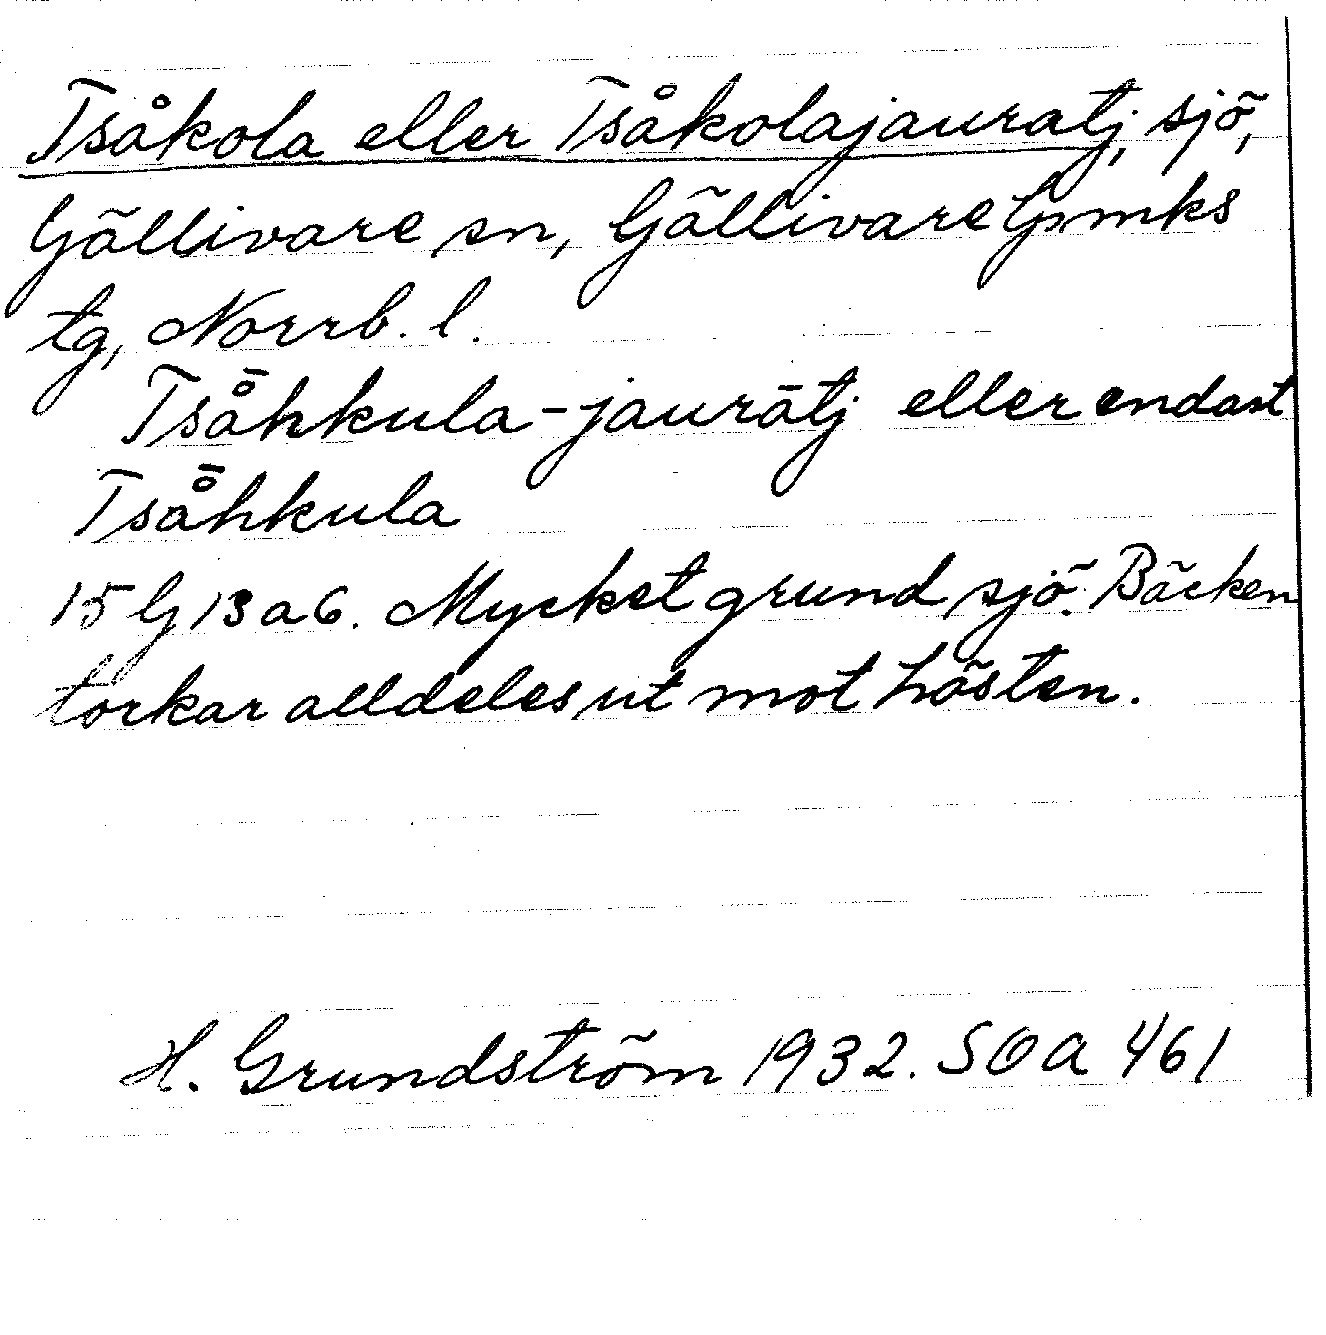 Tsåkola eller Tsåkolajauratj, sjö,
Gällivare sn, Gällivare lpmks
tg, Norrb. l.
Tså̄hkula-jaurātj eller endast
Tså̄hkula
15 G 13 a 6. Mycket grund sjö. Bäcken
torkar alldeles ut mot hösten.
H. Grundström 1932. SOA 461